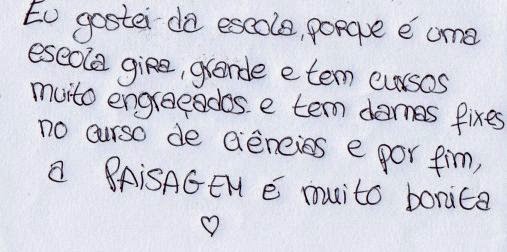 Eu gostei da escola, porque é uma
escola gira, grande e tem cursos
muito engraçados e tem damas fixes
no curso de ciências e por fim,
a PAISAGEM é muito bonita
♡